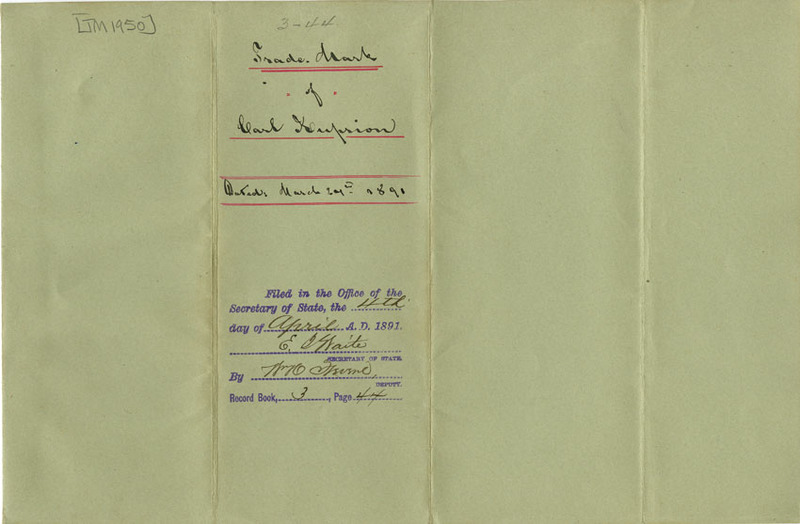 [TM1950]
3-44
Trade. Mark
of
Carl Hupsion
Dated: March 1891
Filed in the Office of the
Secretary of State, the 4th
day of April A. D. 1891.
E. G Waite
SECRETARY OF STATE.
By
DEPUTY.
Record Book, 3, Page 44